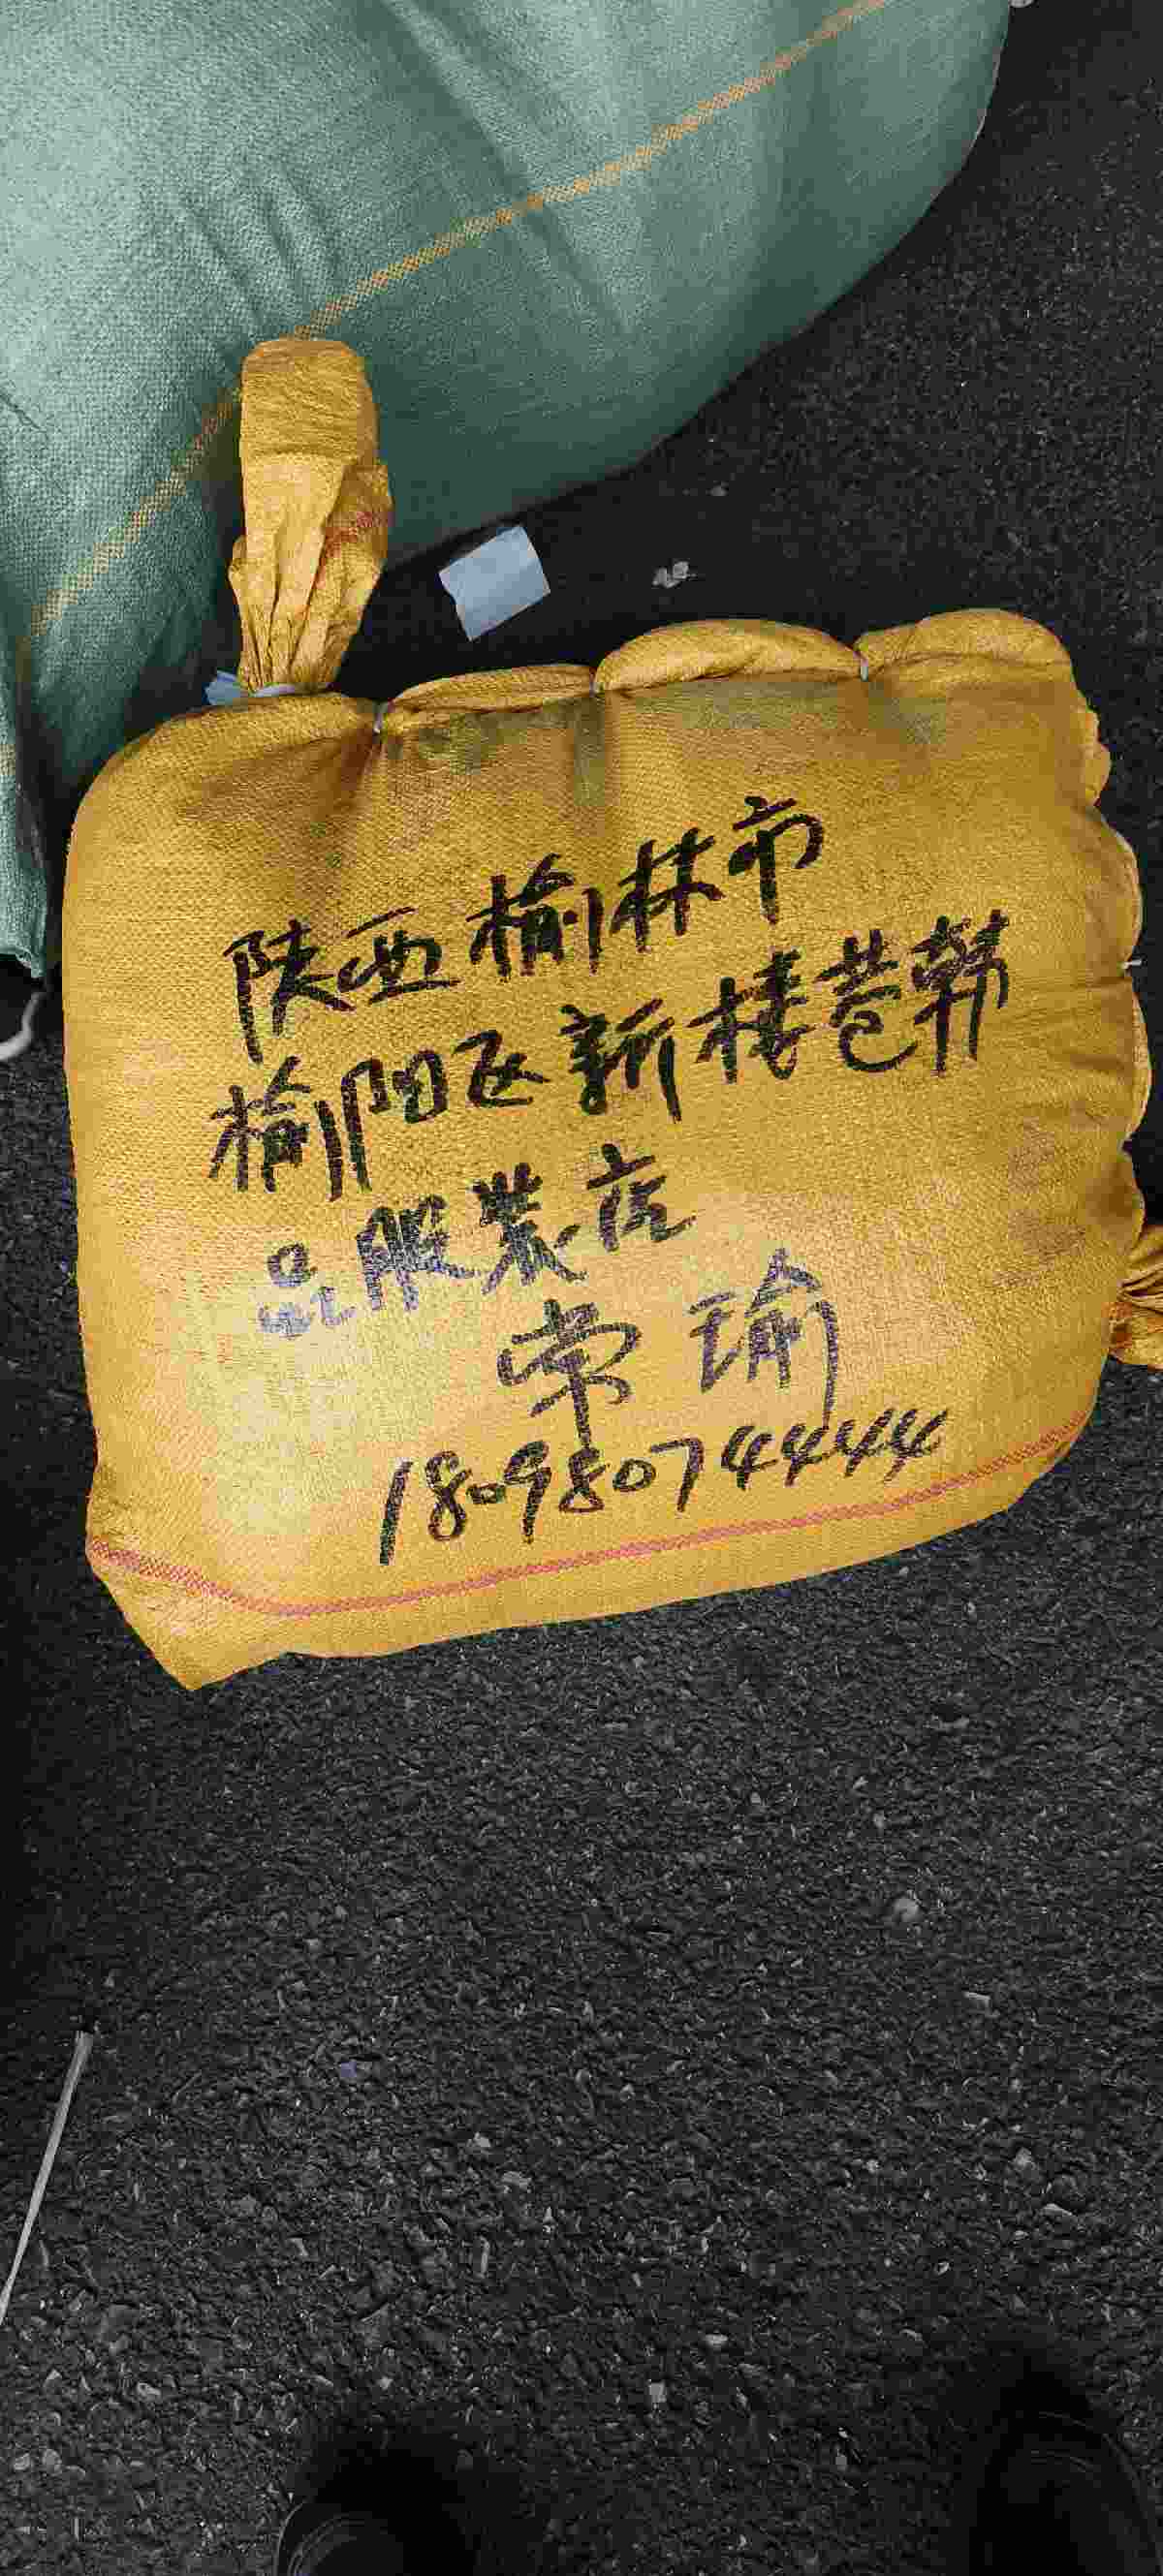 陕西榆林市
榆阳区新楼巷韩
品服装店
常瑜
18098074444